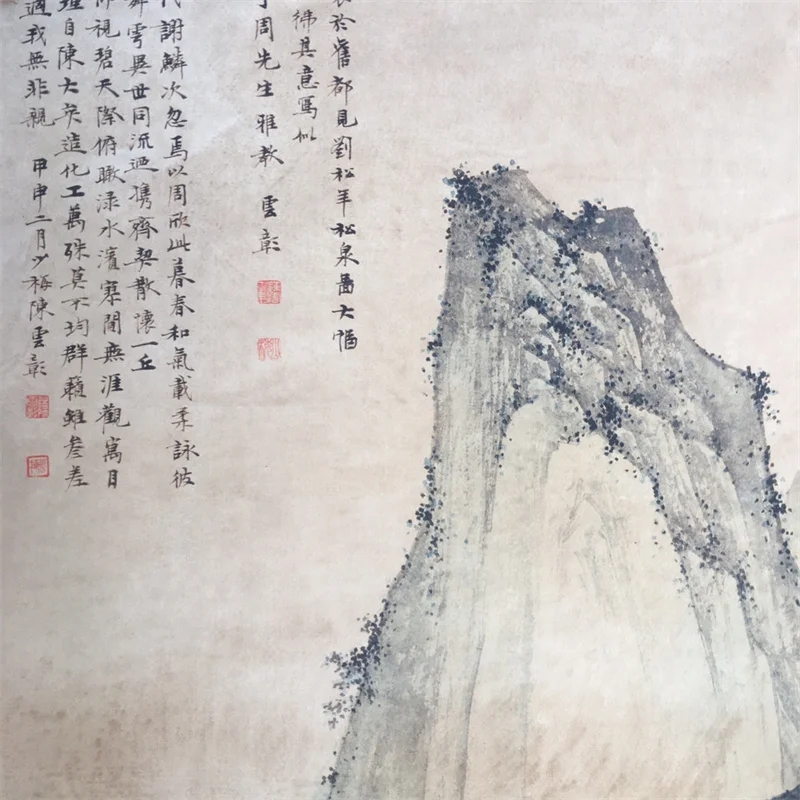 於舊都見劉松年松泉啚大幅
彿其意寫似
周先生雅教 雲彰
代謝鱗次忽焉以周欣此暮春和氣載柔詠彼
舞雩異世同流迺携齊契散懷一丘
仰視碧天際俯瞰淥水濱寥閴無涯觀寓目
理自陳大矣造化工萬殊莫不均群籟雖參差
適我無非親 甲申二月少梅陳雲彰